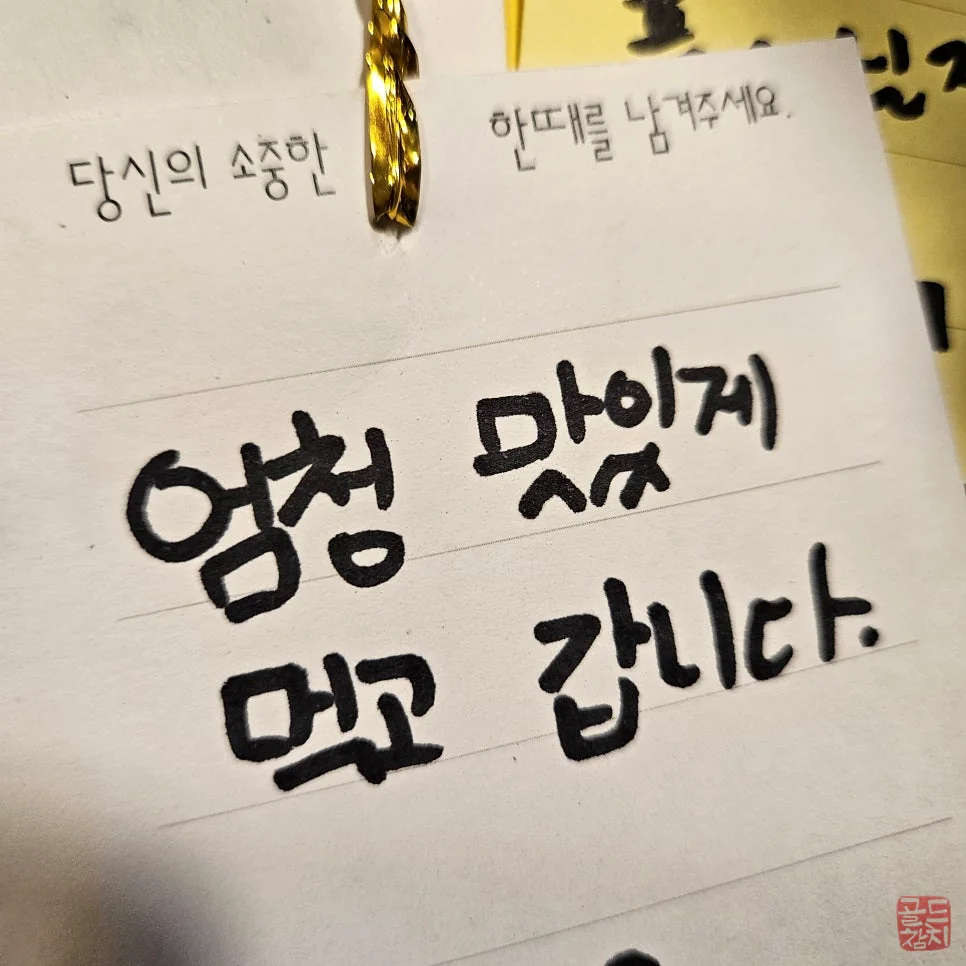 당신의 소중한 한때를 남겨주세요.
엄청 맛있게
먹고 갑니다.
골드
참지